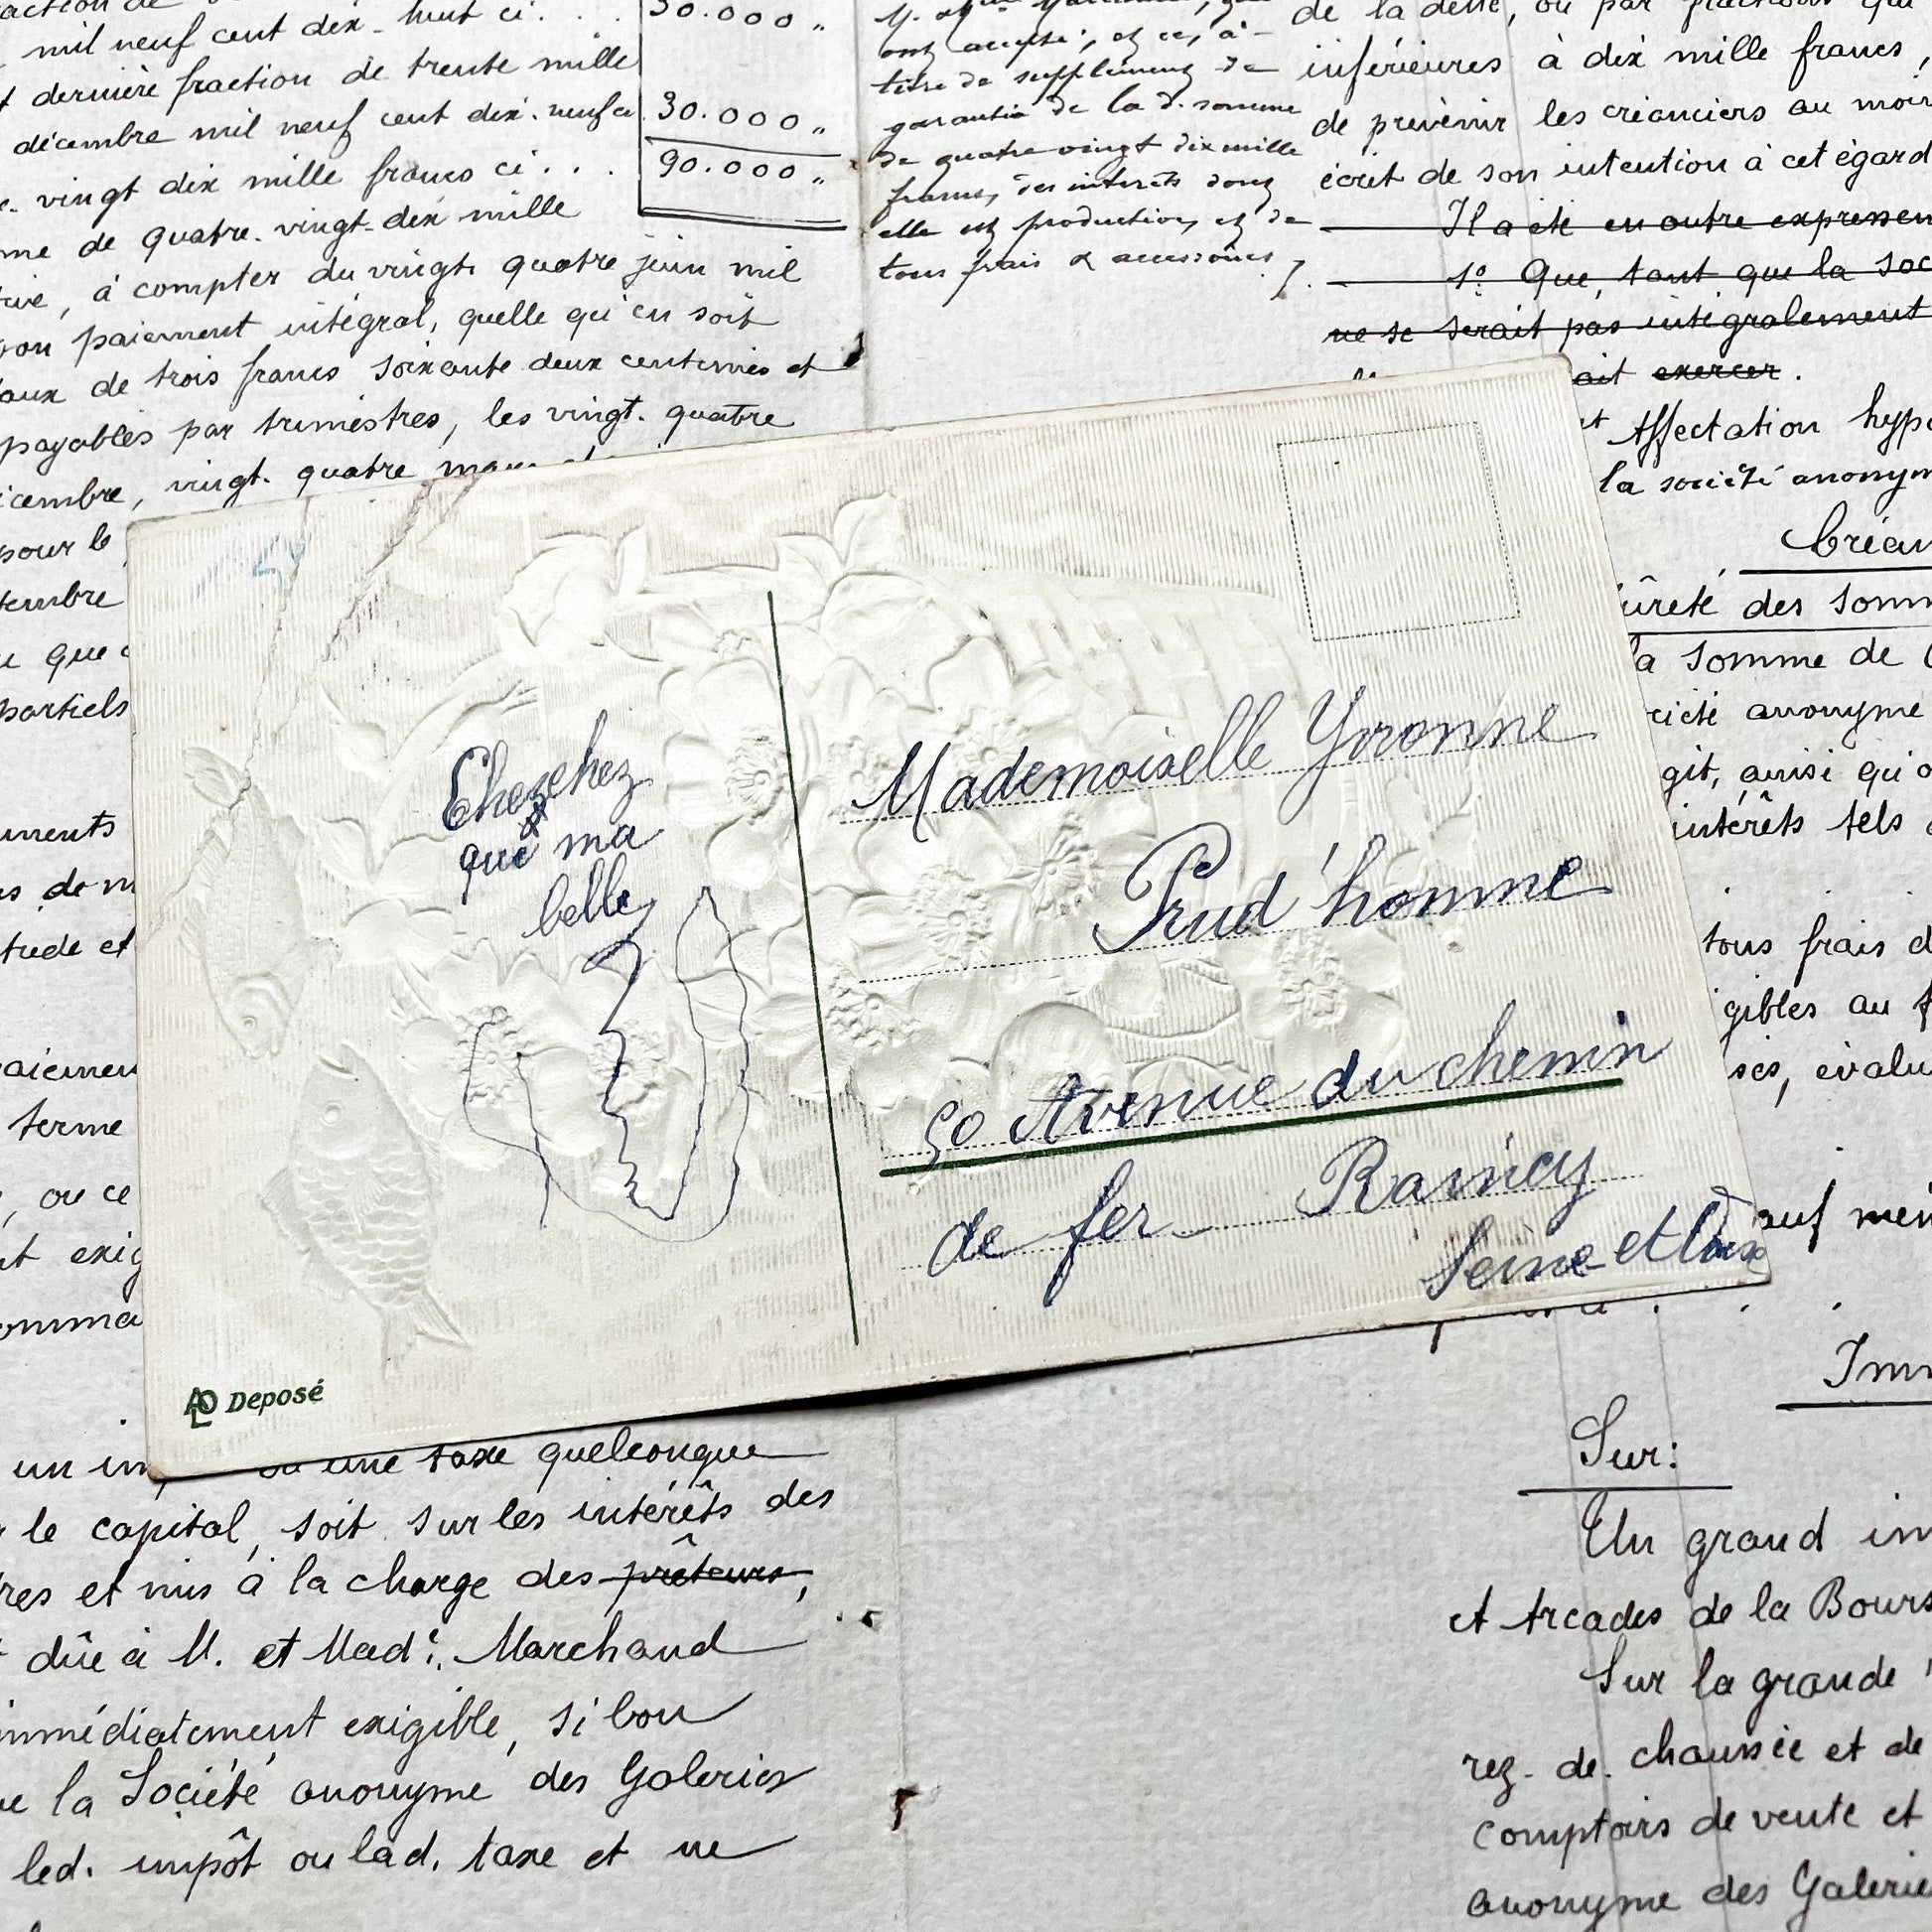 mil neuf cent dix-huit ci . . .
30.000 "
dernière fraction de trente mille
décembre mil neuf cent dix-neuf ci
30.000 "
vingt dix mille francs ci . . .
90.000 "
de quatre-vingt-dix mille
à compter du vingt quatre juin mil
paiement intégral, quelle qu'en soit
de trois francs soixante deux centimes et
payables par trimestres, les vingt-quatre
vingt-quatre mars
pour le
que
partiels
terme
, ou ce
ont accepté, et ce, à
titre de supplément de
garantie de la d. somme
de quatre vingt dix mille
francs, des intérêts dont
elle est production, et de
tous frais & accessoires
de la dette, ou par fractions qui
inférieures à dix mille francs,
de prévenir les créanciers au moin
écrit de son intention à cet égard
Il a été en outre expressem
1º Que, tant que la soc
ne se serait pas intégralement
ait exercer.
Affectation hypo
la société anonym
Créan
sûreté des somm
la somme de
ciété anonyme
git, ainsi qu'o
intérêts tels
tous frais d
gibles au
ses, évalu
sauf men
Cherchez
que ma
belle
Mademoiselle Yvonne
Prud'homme
50 Avenue du chemin
de fer Raincy
Seine et Oise
ALO Deposé
un imp ou une taxe quelconque
le capital, soit sur les intérêts des
res et mis à la charge des prêteurs,
dûe à M. et Madᵉ. Marchand
immédiatement exigible, si bon
la Société anonyme des Galeries
led. impôt ou lad. taxe et ne
Imm
Sur:
Un grand im
et Arcades de la Bours
Sur la grande
rez-de-chaussée et de
comptoirs de vente et
anonyme des Galerie